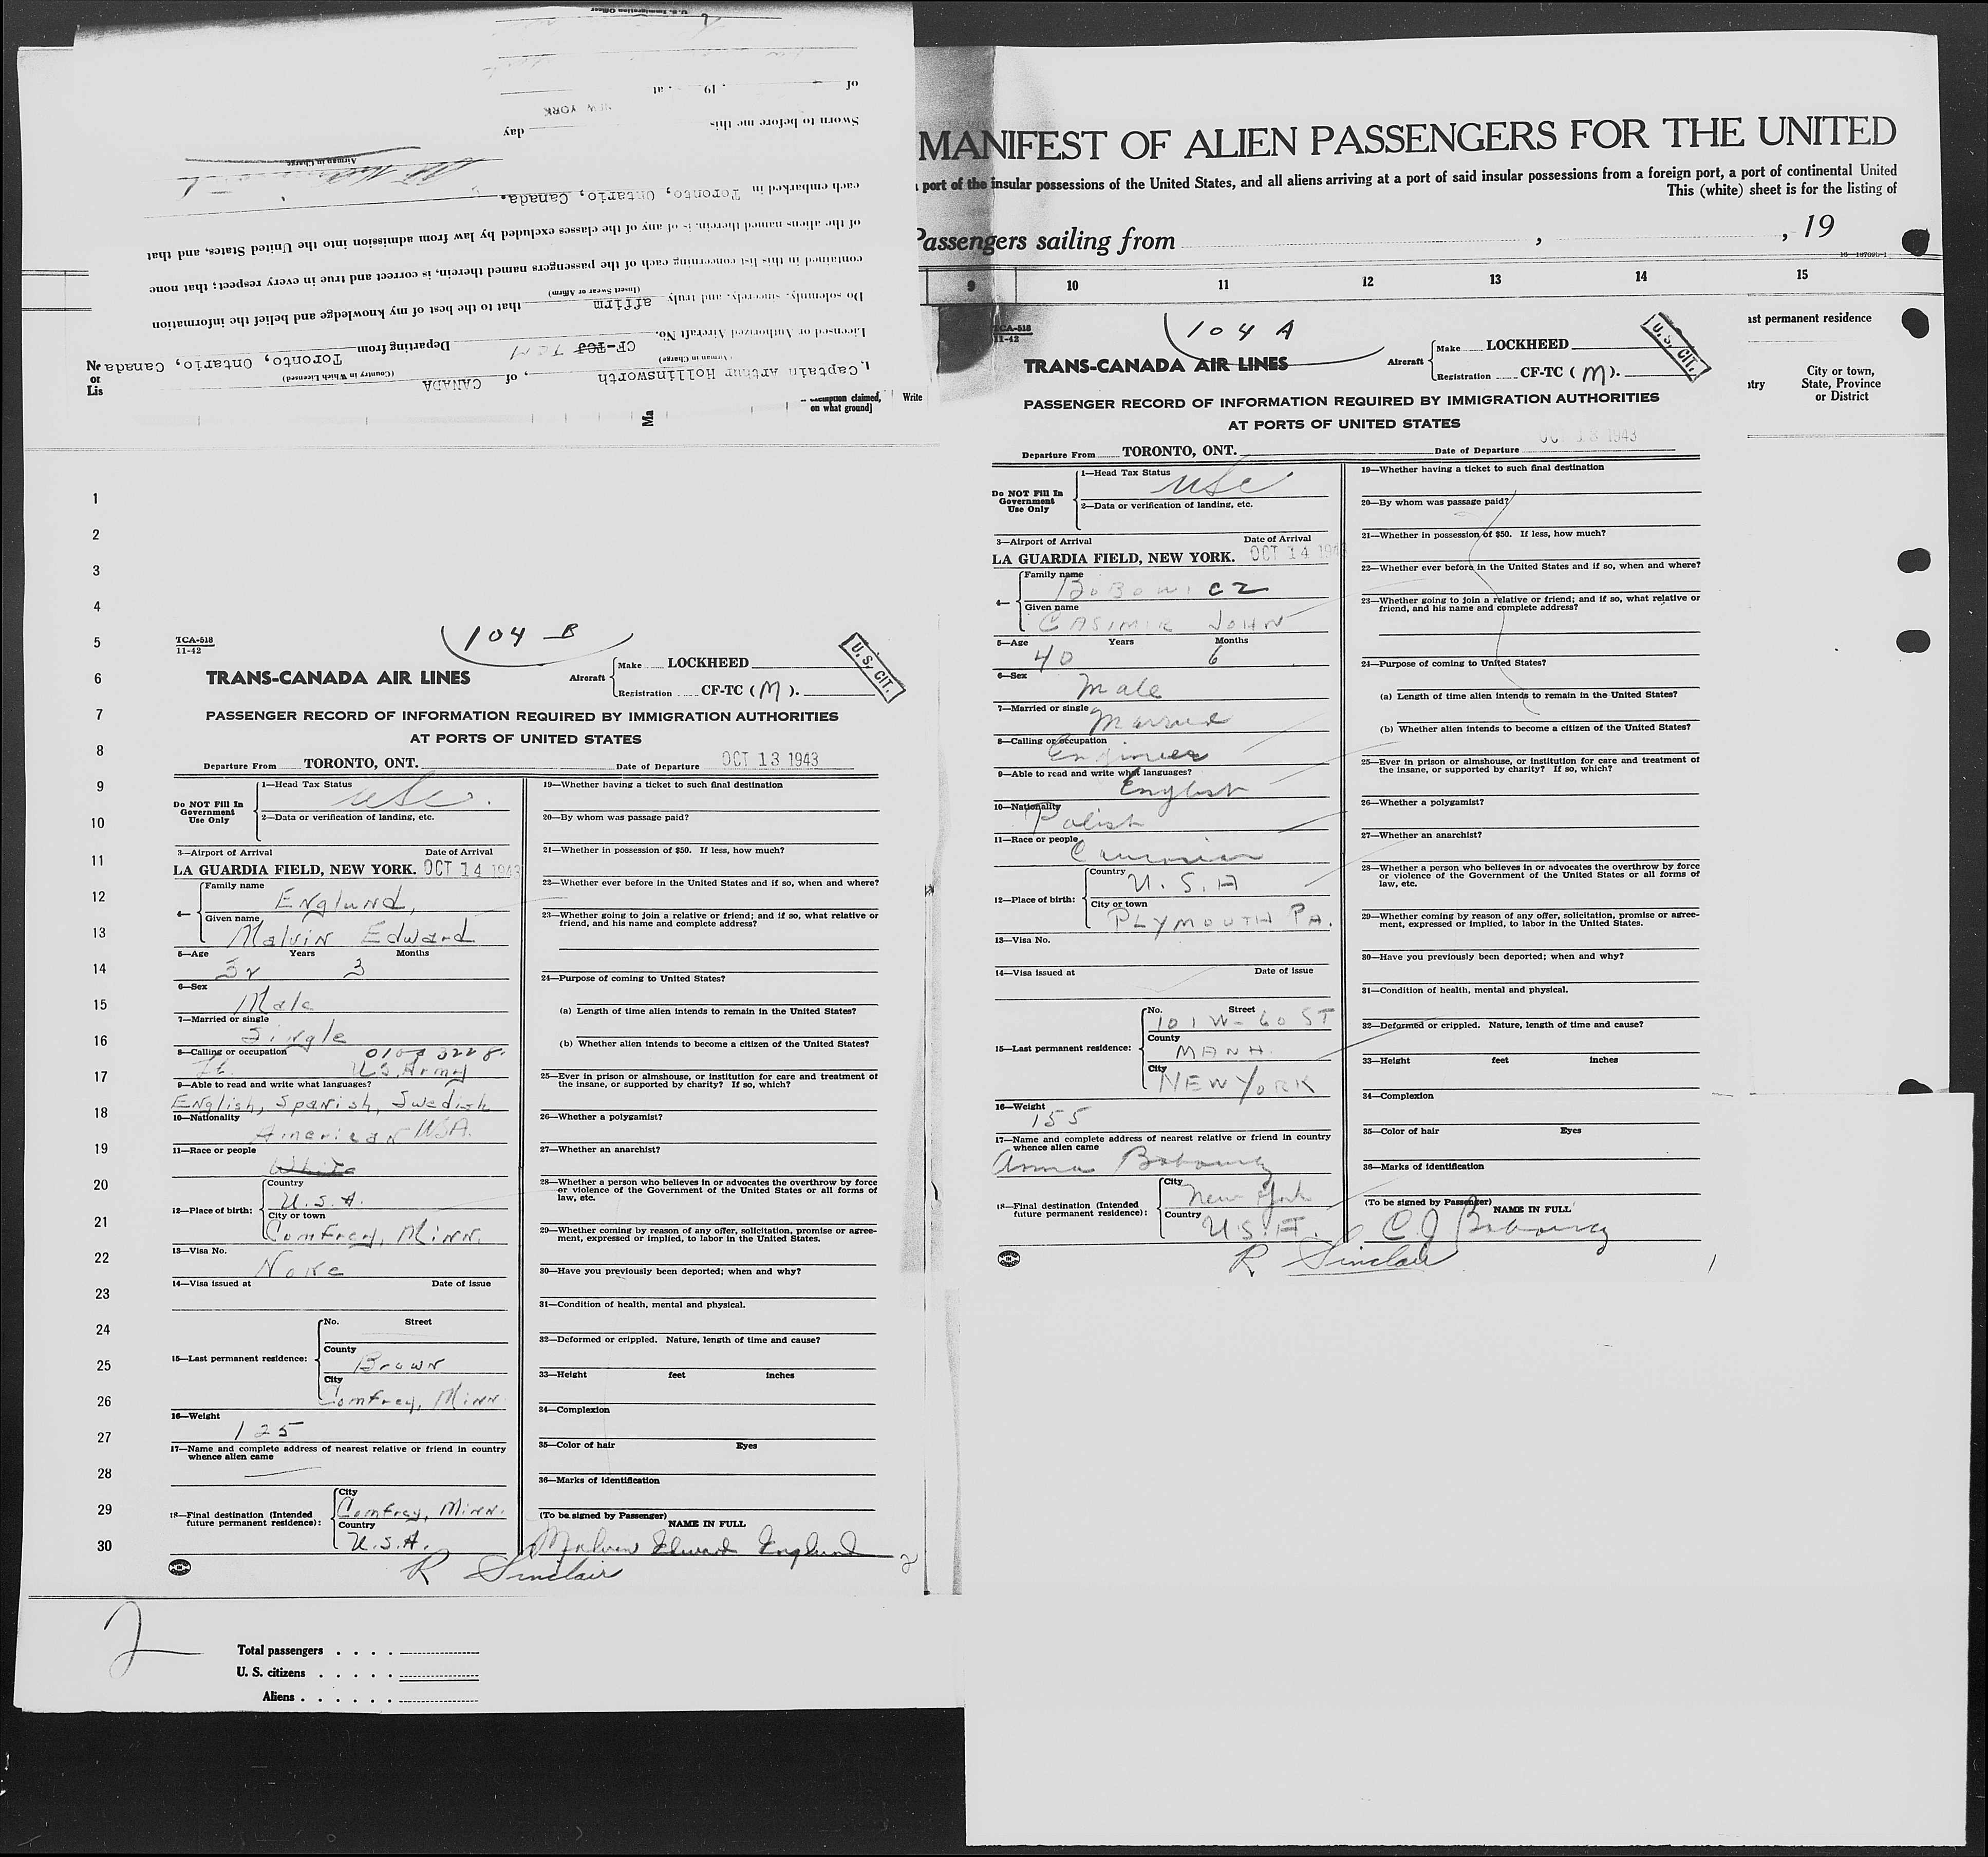 U. S. Immigration Officer
of , 19 at
NEW YORK
Sworn to before me this day
Airman in Charge
each embarked in Toronto, Ontario, Canada.
of the aliens named therein, is of any of the classes excluded by law from admission into the United States, and that
contained in this list concerning each of the passengers named therein, is correct and true in every respect; that none
(Insert Swear or Affirm)
Do solemnly, sincerely, and truly affirm that to the best of my knowledge and belief the information
Licensed or Authorized Aircraft No. CF-TCJ TCM Departing from Toronto, Ontario, Canada
(Airman in Charge) (Country in Which Licensed)
I, Captain Arthur Hollinsworth, of CANADA
or
Lis
Ma
exemption claimed,
on what ground]
Write
MANIFEST OF ALIEN PASSENGERS FOR THE UNITED
port of the insular possessions of the United States, and all aliens arriving at a port of said insular possessions from a foreign port, a port of continental United
This (white) sheet is for the listing of
Passengers sailing from , , 19
9 10 11 12 13 14 15
ast permanent residence
City or town,
State, Province
or District
1
2
3
4
5
6
7
8
9
10
11
12
13
14
15
16
17
18
19
20
21
22
23
24
25
26
27
28
29
30
TCA-518
11-42
104 B
U.S. CIT.
TRANS-CANADA AIR LINES
Aircraft
Make LOCKHEED
Registration CF-TC (M).
PASSENGER RECORD OF INFORMATION REQUIRED BY IMMIGRATION AUTHORITIES
AT PORTS OF UNITED STATES
Departure From TORONTO, ONT. Date of Departure OCT 13 1943
Do NOT Fill In
Government
Use Only
1—Head Tax Status
USC.
2—Data or verification of landing, etc.
3—Airport of Arrival Date of Arrival
LA GUARDIA FIELD, NEW YORK. OCT 14 1943
4—
Family name
Englund,
Given name
Malvin Edward
5—Age Years Months
32 3
6—Sex
Male
7—Married or single
Single
8—Calling or occupation
Lt. U.S. Army
9—Able to read and write what languages?
English, Spanish, Swedish
10—Nationality
American USA.
11—Race or people
White
12—Place of birth:
Country
U.S.A.
City or town
Comfrey, Minn.
13—Visa No.
None
14—Visa issued at Date of issue
15—Last permanent residence:
No. Street
County
Brown
City
Comfrey, Minn
16—Weight
125
17—Name and complete address of nearest relative or friend in country
whence alien came
18—Final destination (Intended
future permanent residence):
City
Comfrey, Minn.
Country
U.S.A.
R Sinclair
19—Whether having a ticket to such final destination
20—By whom was passage paid?
21—Whether in possession of $50. If less, how much?
22—Whether ever before in the United States and if so, when and where?
23—Whether going to join a relative or friend; and if so, what relative or
friend, and his name and complete address?
24—Purpose of coming to United States?
(a) Length of time alien intends to remain in the United States?
(b) Whether alien intends to become a citizen of the United States?
25—Ever in prison or almshouse, or institution for care and treatment of
the insane, or supported by charity? If so, which?
26—Whether a polygamist?
27—Whether an anarchist?
28—Whether a person who believes in or advocates the overthrow by force
or violence of the Government of the United States or all forms of
law, etc.
29—Whether coming by reason of any offer, solicitation, promise or agree-
ment, expressed or implied, to labor in the United States.
30—Have you previously been deported; when and why?
31—Condition of health, mental and physical.
32—Deformed or crippled. Nature, length of time and cause?
33—Height feet inches
34—Complexion
35—Color of hair Eyes
36—Marks of identification
(To be signed by Passenger)
NAME IN FULL
Malvin Edward Englund
2
2
Total passengers
U. S. citizens
Aliens
TCA-518
11-42
104 A
U.S. CIT.
TRANS-CANADA AIR LINES
Aircraft
Make LOCKHEED
Registration CF-TC (M).
PASSENGER RECORD OF INFORMATION REQUIRED BY IMMIGRATION AUTHORITIES
AT PORTS OF UNITED STATES
Departure From TORONTO, ONT. Date of Departure OCT 13 1943
Do NOT Fill In
Government
Use Only
1—Head Tax Status
USC
2—Data or verification of landing, etc.
3—Airport of Arrival Date of Arrival
LA GUARDIA FIELD, NEW YORK. OCT 14 194
4—
Family name
BoBowicz
Given name
CASIMIR JOHN
5—Age Years Months
40 6
6—Sex
Male
7—Married or single
Married
8—Calling or occupation
Engineer
9—Able to read and write what languages?
English
10—Nationality
Polish
11—Race or people
12—Place of birth:
Country
U.S.A
City or town
PLYMOUTH PA.
13—Visa No.
14—Visa issued at Date of issue
15—Last permanent residence:
No. Street
101 W- 60 ST
County
MANH.
City
NEW YORK
16—Weight
155
17—Name and complete address of nearest relative or friend in country
whence alien came
Anna Bobowicz
18—Final destination (Intended
future permanent residence):
City
New York
Country
U.S.A.
R Sinclair
19—Whether having a ticket to such final destination
20—By whom was passage paid?
21—Whether in possession of $50. If less, how much?
22—Whether ever before in the United States and if so, when and where?
23—Whether going to join a relative or friend; and if so, what relative or
friend, and his name and complete address?
24—Purpose of coming to United States?
(a) Length of time alien intends to remain in the United States?
(b) Whether alien intends to become a citizen of the United States?
25—Ever in prison or almshouse, or institution for care and treatment of
the insane, or supported by charity? If so, which?
26—Whether a polygamist?
27—Whether an anarchist?
28—Whether a person who believes in or advocates the overthrow by force
or violence of the Government of the United States or all forms of
law, etc.
29—Whether coming by reason of any offer, solicitation, promise or agree-
ment, expressed or implied, to labor in the United States.
30—Have you previously been deported; when and why?
31—Condition of health, mental and physical.
32—Deformed or crippled. Nature, length of time and cause?
33—Height feet inches
34—Complexion
35—Color of hair Eyes
36—Marks of identification
(To be signed by Passenger)
NAME IN FULL
C J Bobowicz